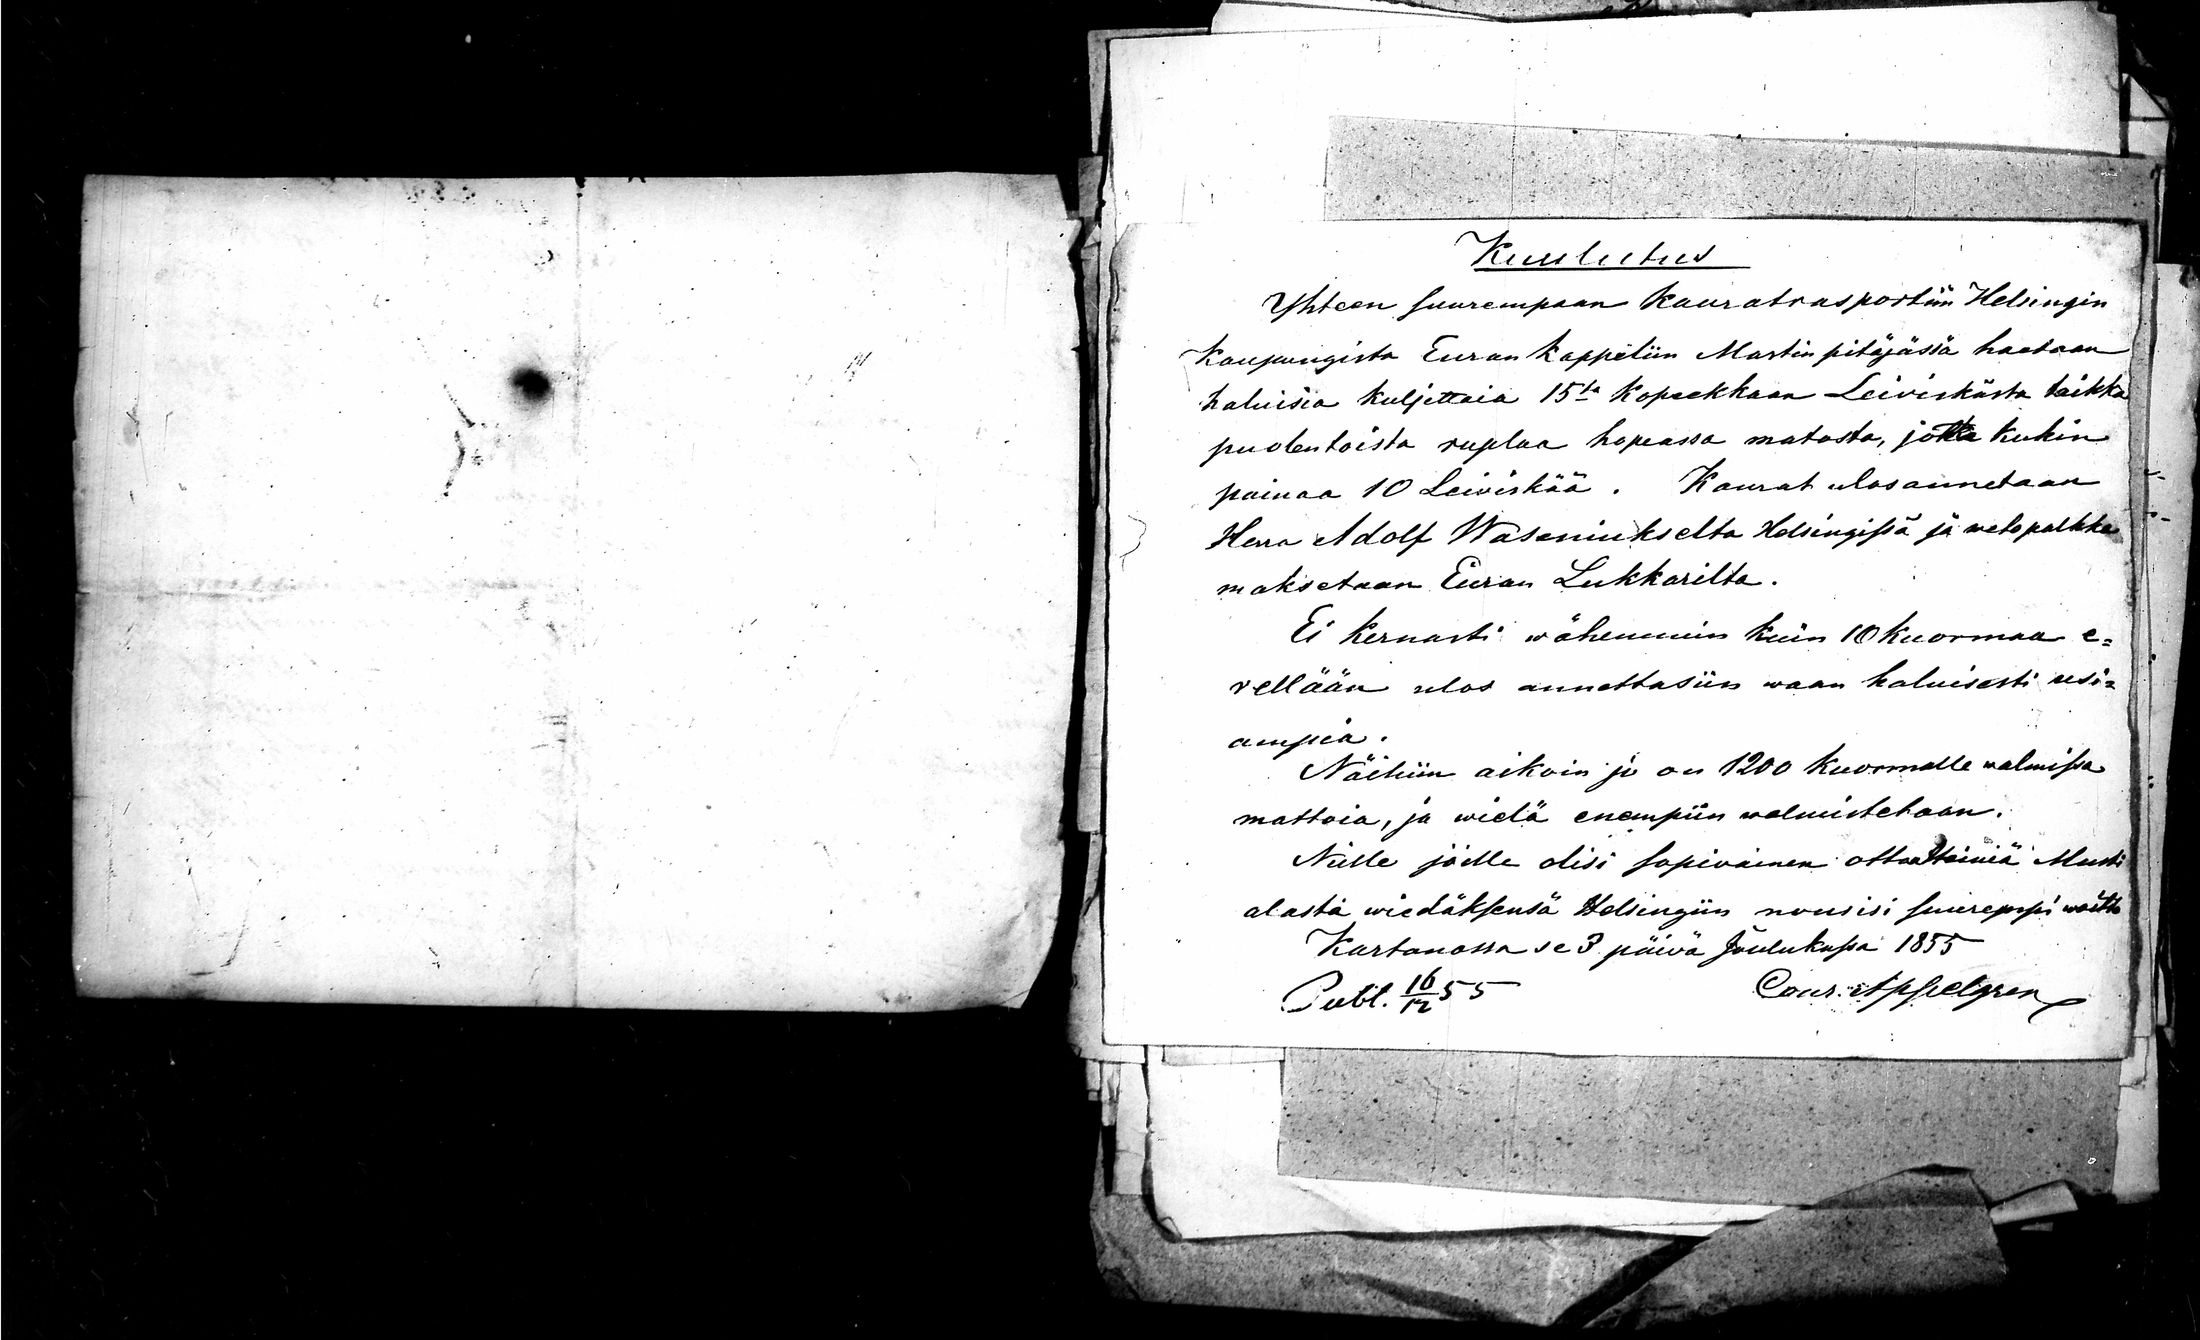 Kuulutus
Yhteen suurempaan kauratrasportiin Helsingin
kaupungista Euran kappeliin Martin pitäjässä haetaan
haluisia kuljettaia 15ta kopeekkaan Leiviskästä taikka
puolentoista ruplaa hopeassa matosta, jotka kukin
painaa 10 Leiviskää. Kaurat ulosannetaan
Herra Adolf Waseniukselta Helsingissä ja wetopalkka
maksetaan Euran Lukkarilta.
Ei kernasti wähemmin kuin 10 kuormaa e=
rellään ulos annettasiin waan haluisesti usi=
ampia.
Näihin aikoin jo on 1200 kuormalle walmissa
mattoia, ja wielä enempiin walmistetaan.
Niille joille olisi sopivainen ottaa Heiniä Musti
alasta wiedäksensä Helsingiin nousisi suurempi woitto
Kartanossa se 3 päivä Joulukussa 1855
Publ. 16/12 55 Conr. Appelgren